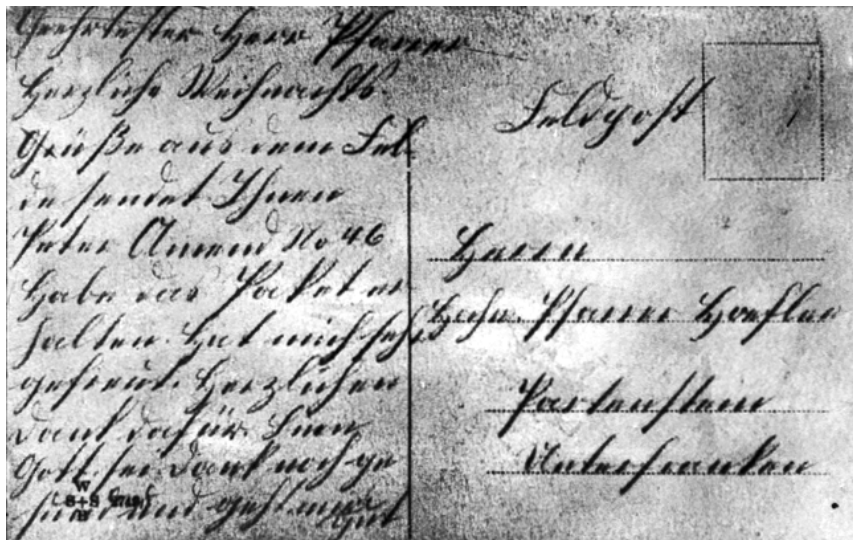 Geehrtester Herr Pfarrer
Herzliche Weihnachts-
Grüße aus dem Fel-
de sendet Ihnen
Peter Amend No 46
Habe das Paket er
halten. Hat mich sehr
gefreut. Herzlichen
Dank dafür. Binn
Gott sei Dank noch ge
sund und geht mir
gut
Feldpost
Herrn
Hochw. Pfarrer Hoefler
Partenstein
Unterfranken